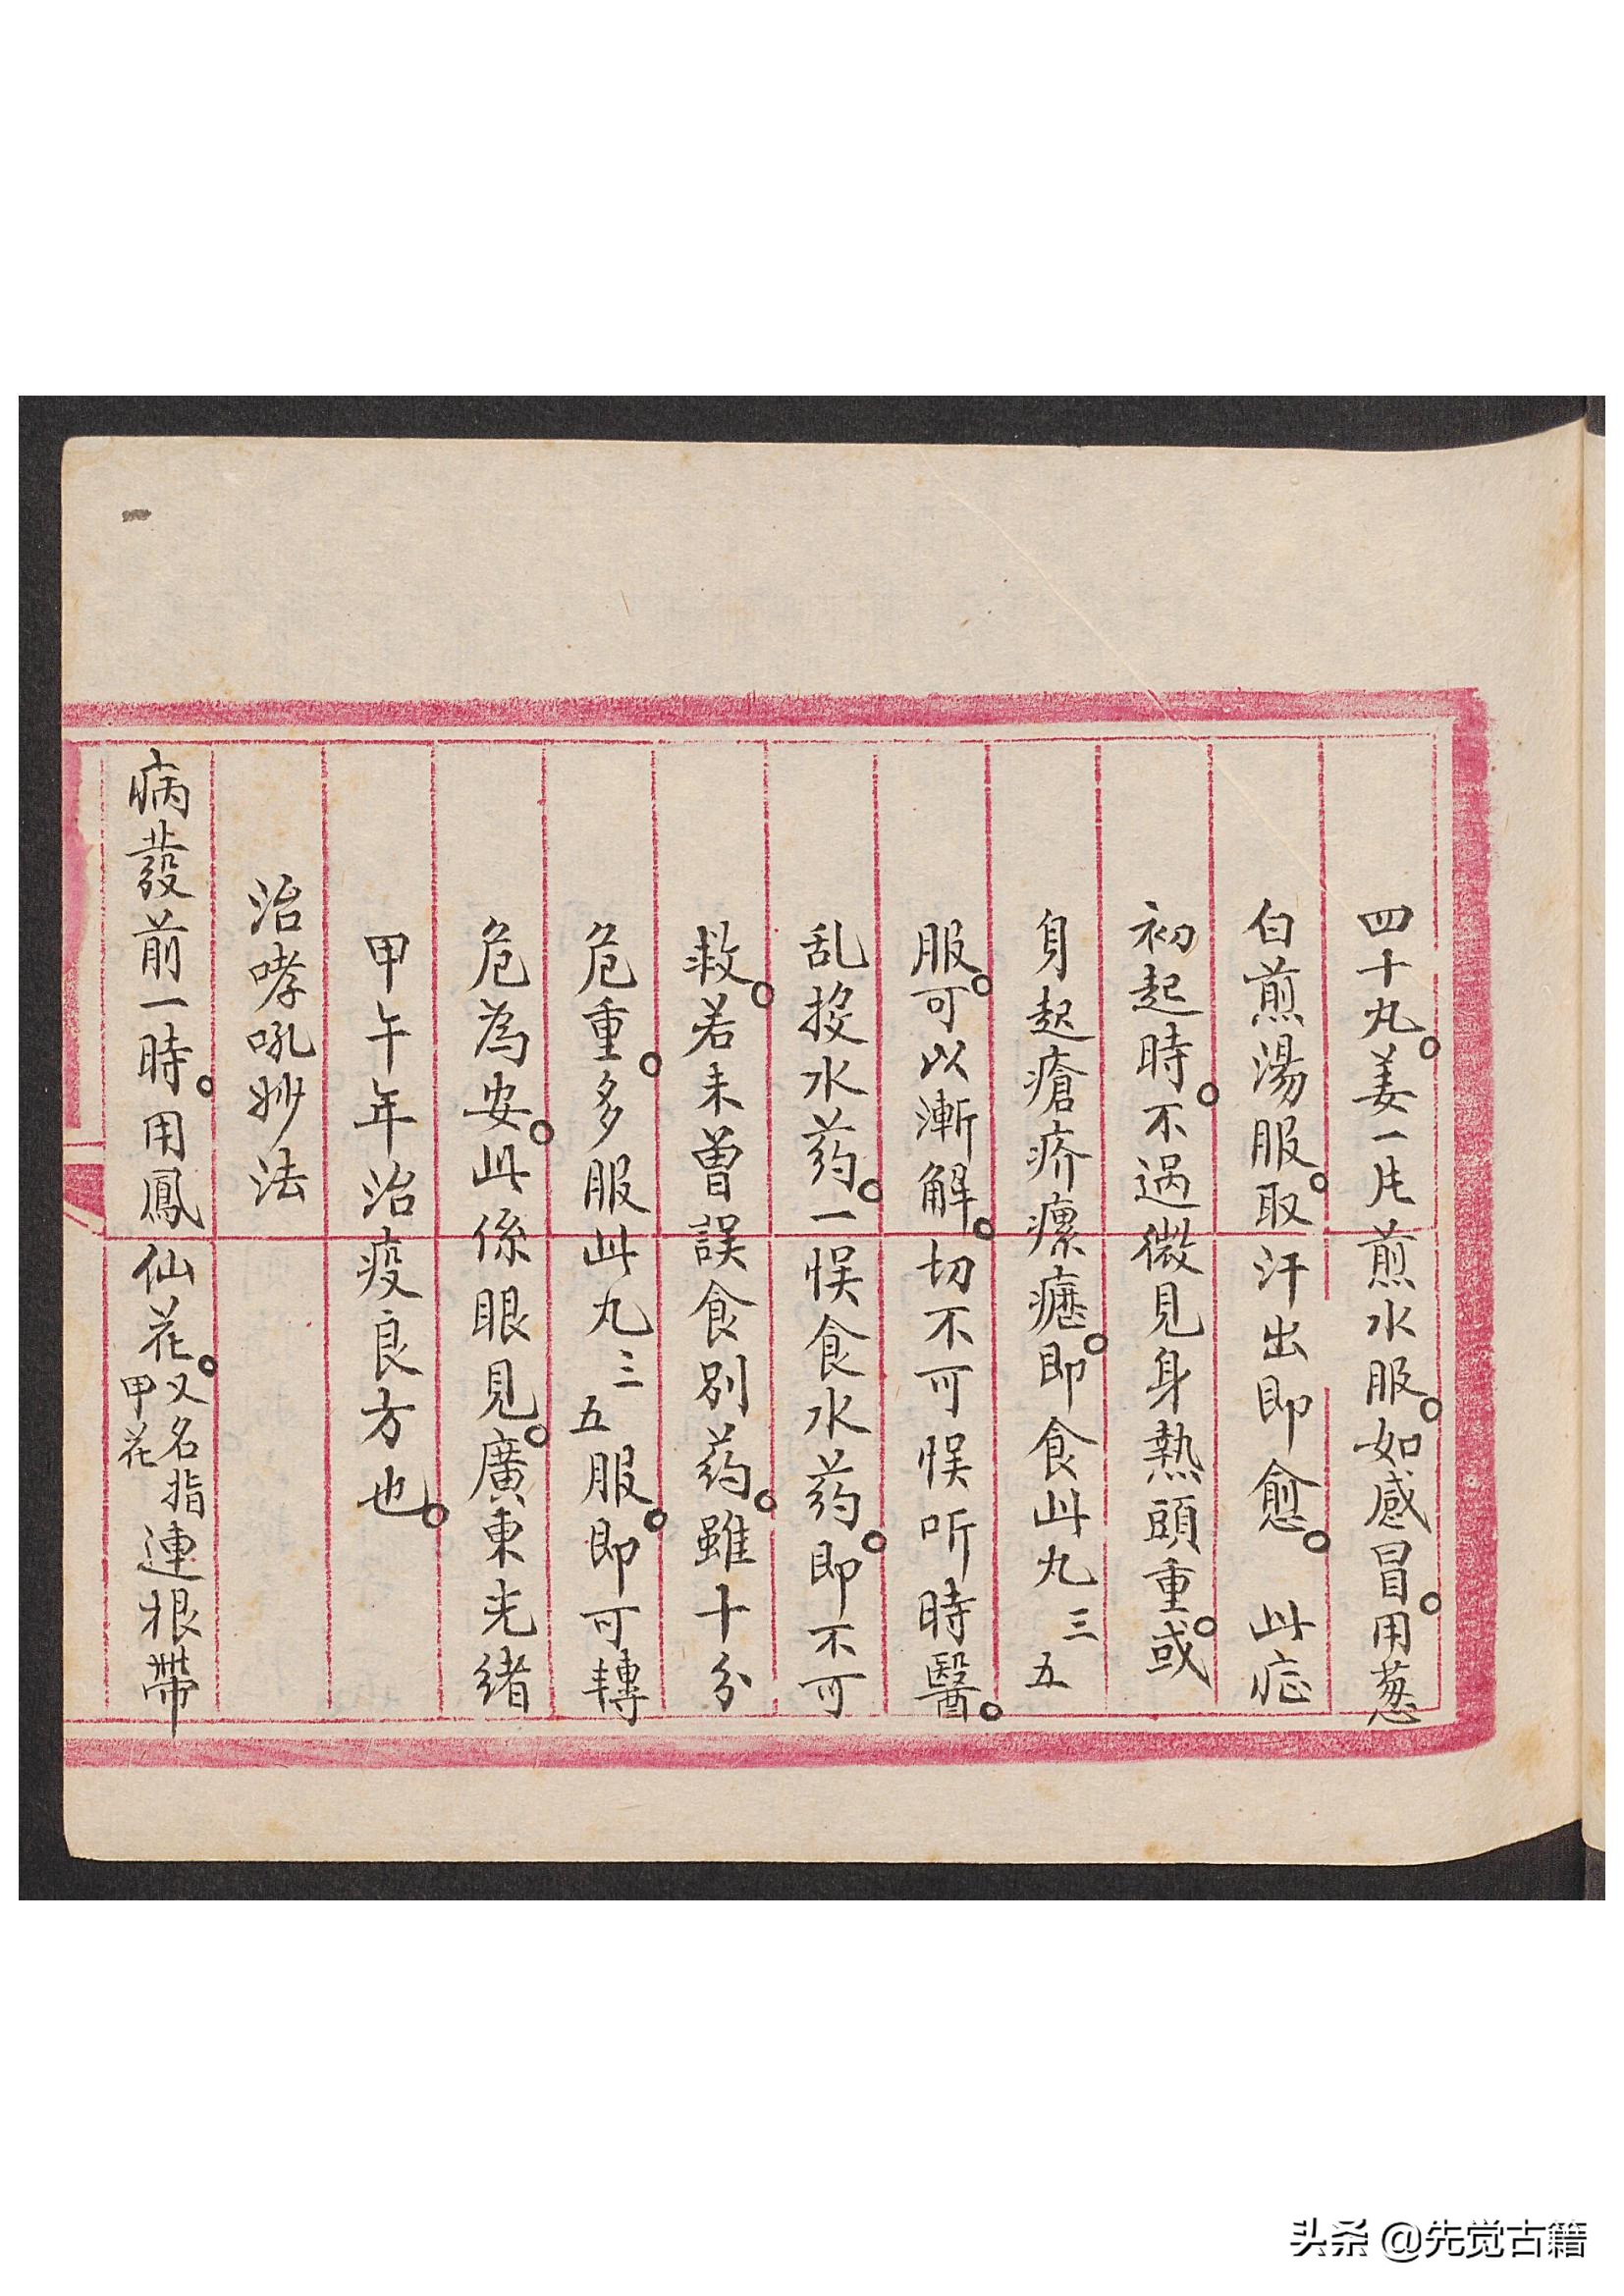 四十丸。姜一片煎水服。如感冒。用葱
白煎湯服。取汗出即愈。 此症
初起時。不过微見身熱頭重。或
身起瘡疥瘰癧。即食此丸三五
服。可以漸解。切不可悞听時醫。
乱投水药。一悞食水药。即不可
救。若未曾誤食別药。雖十分
危重。多服此丸三五服。即可轉
危為安。此係眼見。廣東光緒
甲午年治疫良方也。
治哮吼妙法
病發前一時。用鳳仙花。又名指甲花連根帶
頭条 @先觉古籍